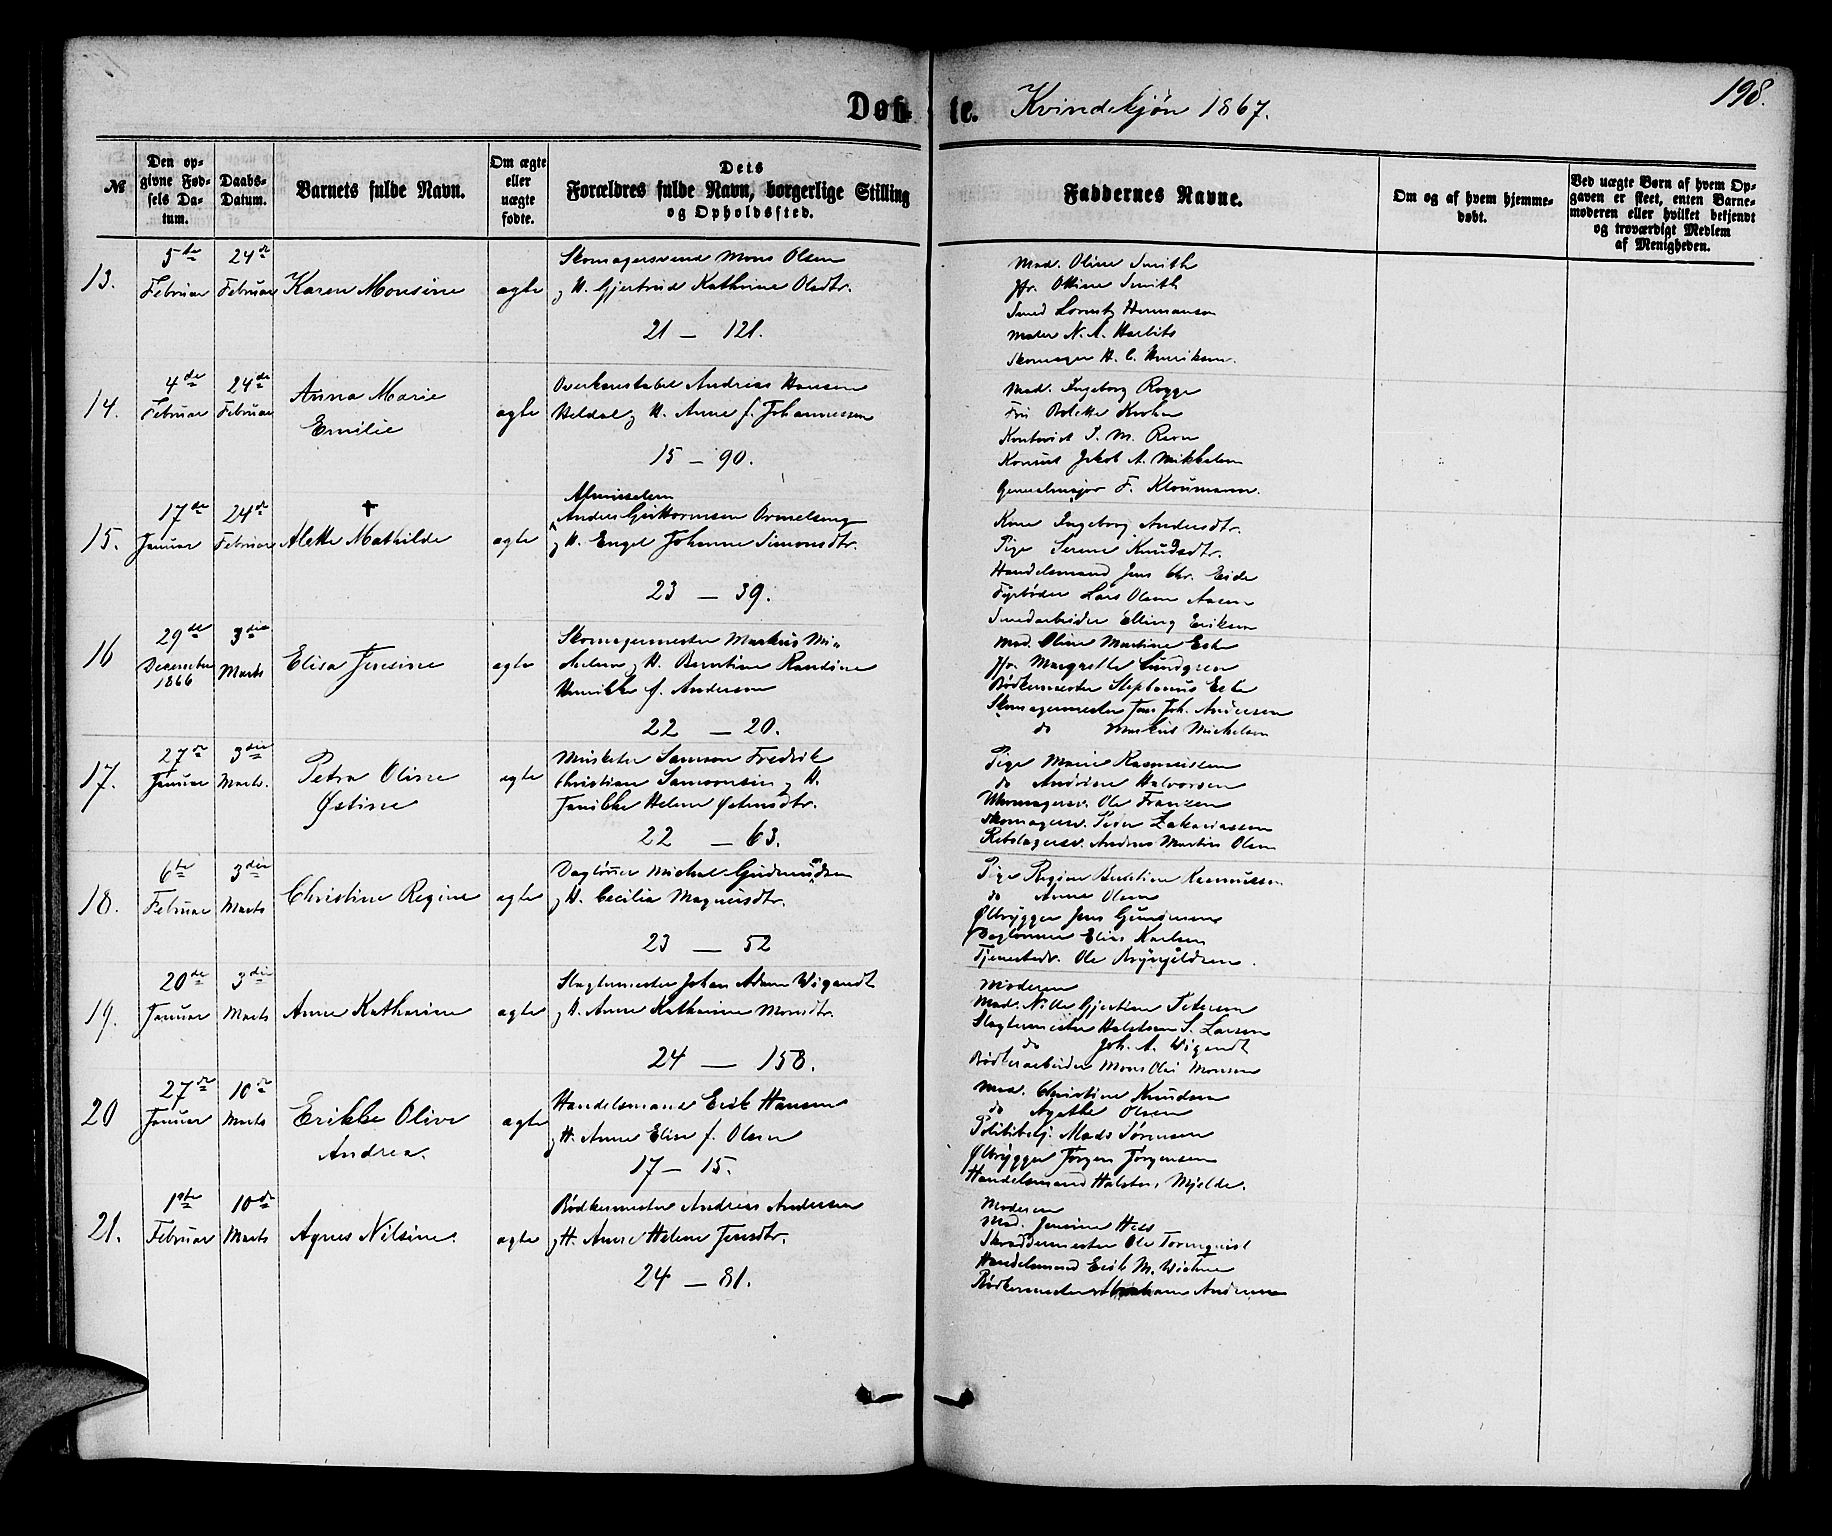 198.
Døbte. Kvindekjøn 1867.
№
Den opgivne Fødsels Datum.
Daabs-Datum.
Barnets fulde Navn.
Om ægte eller uægte fødte.
Dets Forældres fulde Navn, borgerlige Stilling og Opholdssted.
Faddernes Navne.
Om og af hvem hjemmedøbt.
Ved uægte Børn af hvem Opgaven er skeet, enten Barnemoderen eller hvilket bekjendt og troværdigt Medlem af Menigheden.
13.
5te Februar
24de Februar
Karen Monsine
ægte
Skomagersvend Mons Olsen
og H. Gjertrud Kathrine Olsdtr.
21 — 121.
Mad. Oline Smith
Jfr. Ottine Smith
Smed Hermansen
Maler N. A.
Skomager H. C. Henriksen.
14.
4de Februar
24de Februar
Anna Marie
Emilie
ægte
Overkonstabel Andreas Hansen
Heldal og H. Anne f. Johannessen
15 — 90.
Mad. Ingeborg Rogge
Bolette Krohn
J. M. Ravn
Konsul Jakob A. Mikkelsen
Generalmajor F. Kloumann.
15.
17de Januar
24de Februar
†
Alette Mathilde
ægte
Almisselem
Anders Guttormsen
og H. Engel Johanne Simonsdtr.
23 — 39.
Kone Ingeborg Andersdtr.
Pige Serine Knudsdtr.
Handelsmand Jens Chr. Eide
Fyrbøder Lars Olsen Aasen
Smedarbeider Elling Eriksen
16
29de December 1866
3die Marts
Elisa Jensine
ægte
Skomagermester Markus Mi-
chelsen og H. Berntine Randine
Henrikke f. Andersen
22 — 20.
Mad. Oline Martine Eske
Jfr. Margrethe Lundgren
Bødkermester Stephanus Eske
Skomagermester Jens Joh. Andersen
do Markus Michelsen
17.
27de Januar
3die Marts.
Petra Oline
Østine
ægte
Musketer Samson Fredrik
Christian Samsonsen og H.
Janikke Helene Østensdtr.
22 — 63.
Pige Marie Rasmussen
do Andrine Halvorsen
Uhrmagersv. Ole Franzen
Skomagersv. Peder Zakariassen
Rebslagersv. Andreas Martin Olsen
18.
6te Februar
3die Marts
Christine Regine
ægte
Dagløner Michael Gudmundsen
og H. Cecilia Magnusdtr.
23 — 52
Pige Regine Berntine Rasmussen
do Anne Olsen
Ølbrygger Jens Gundersen
Dagløner Elias Karlsen
Tjenestedr. Ole Brynjeldsen.
19.
20de Januar
3die Marts
Anne Katharine
ægte
Slagtermester Johan Adam Wigandt
og H. Anne Katharine Monsdtr.
24 — 158.
Moderen
Mad. Nille Gjertine Petersen
Slagtermester Halstein S. Larsen
do Joh. A. Wigandt
Bødkerarbeider Mons Olai Monsen
20
27de Januar
10de Marts
Erikke Olive
Andrea.
ægte
Handelsmand Erik Hansen
og H. Anne Elise f. Olsen
17 — 15.
Mad. Christine Knudsen
do Agathe Olsen
Politibetj. Mads Sørensen
Ølbrygger Jørgen Jørgensen
Handelsmand Halsten Mjelde.
21.
1ste Februar
10de Marts
Agnes Nilsine.
ægte
Bødkermester Andreas Andersen
og H. Anne Helene Jensdtr.
24 — 81.
Moderen
Mad. Jensine Hess
Skræddermester Ole Tornquist
Handelsmand Erik M. Wichne
Bødkermester Abraham Andersen